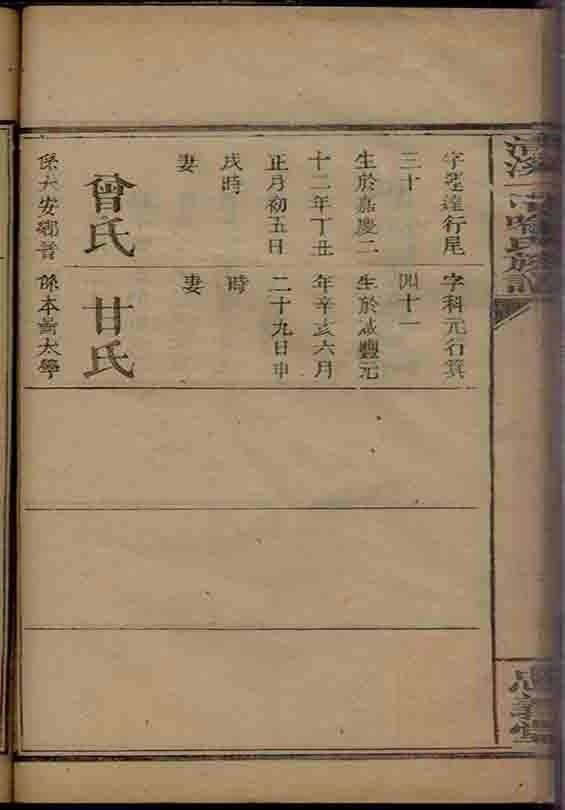 氏族譜
字達行尾
三十
生於嘉慶二
十二年丁丑
正月初五日
戌時
妻
曾氏
係大安鄉普
字科元行箕
四十一
生於咸豐元
年辛亥六月
二十九日申
時
妻
甘氏
係本啚太學
忠義堂